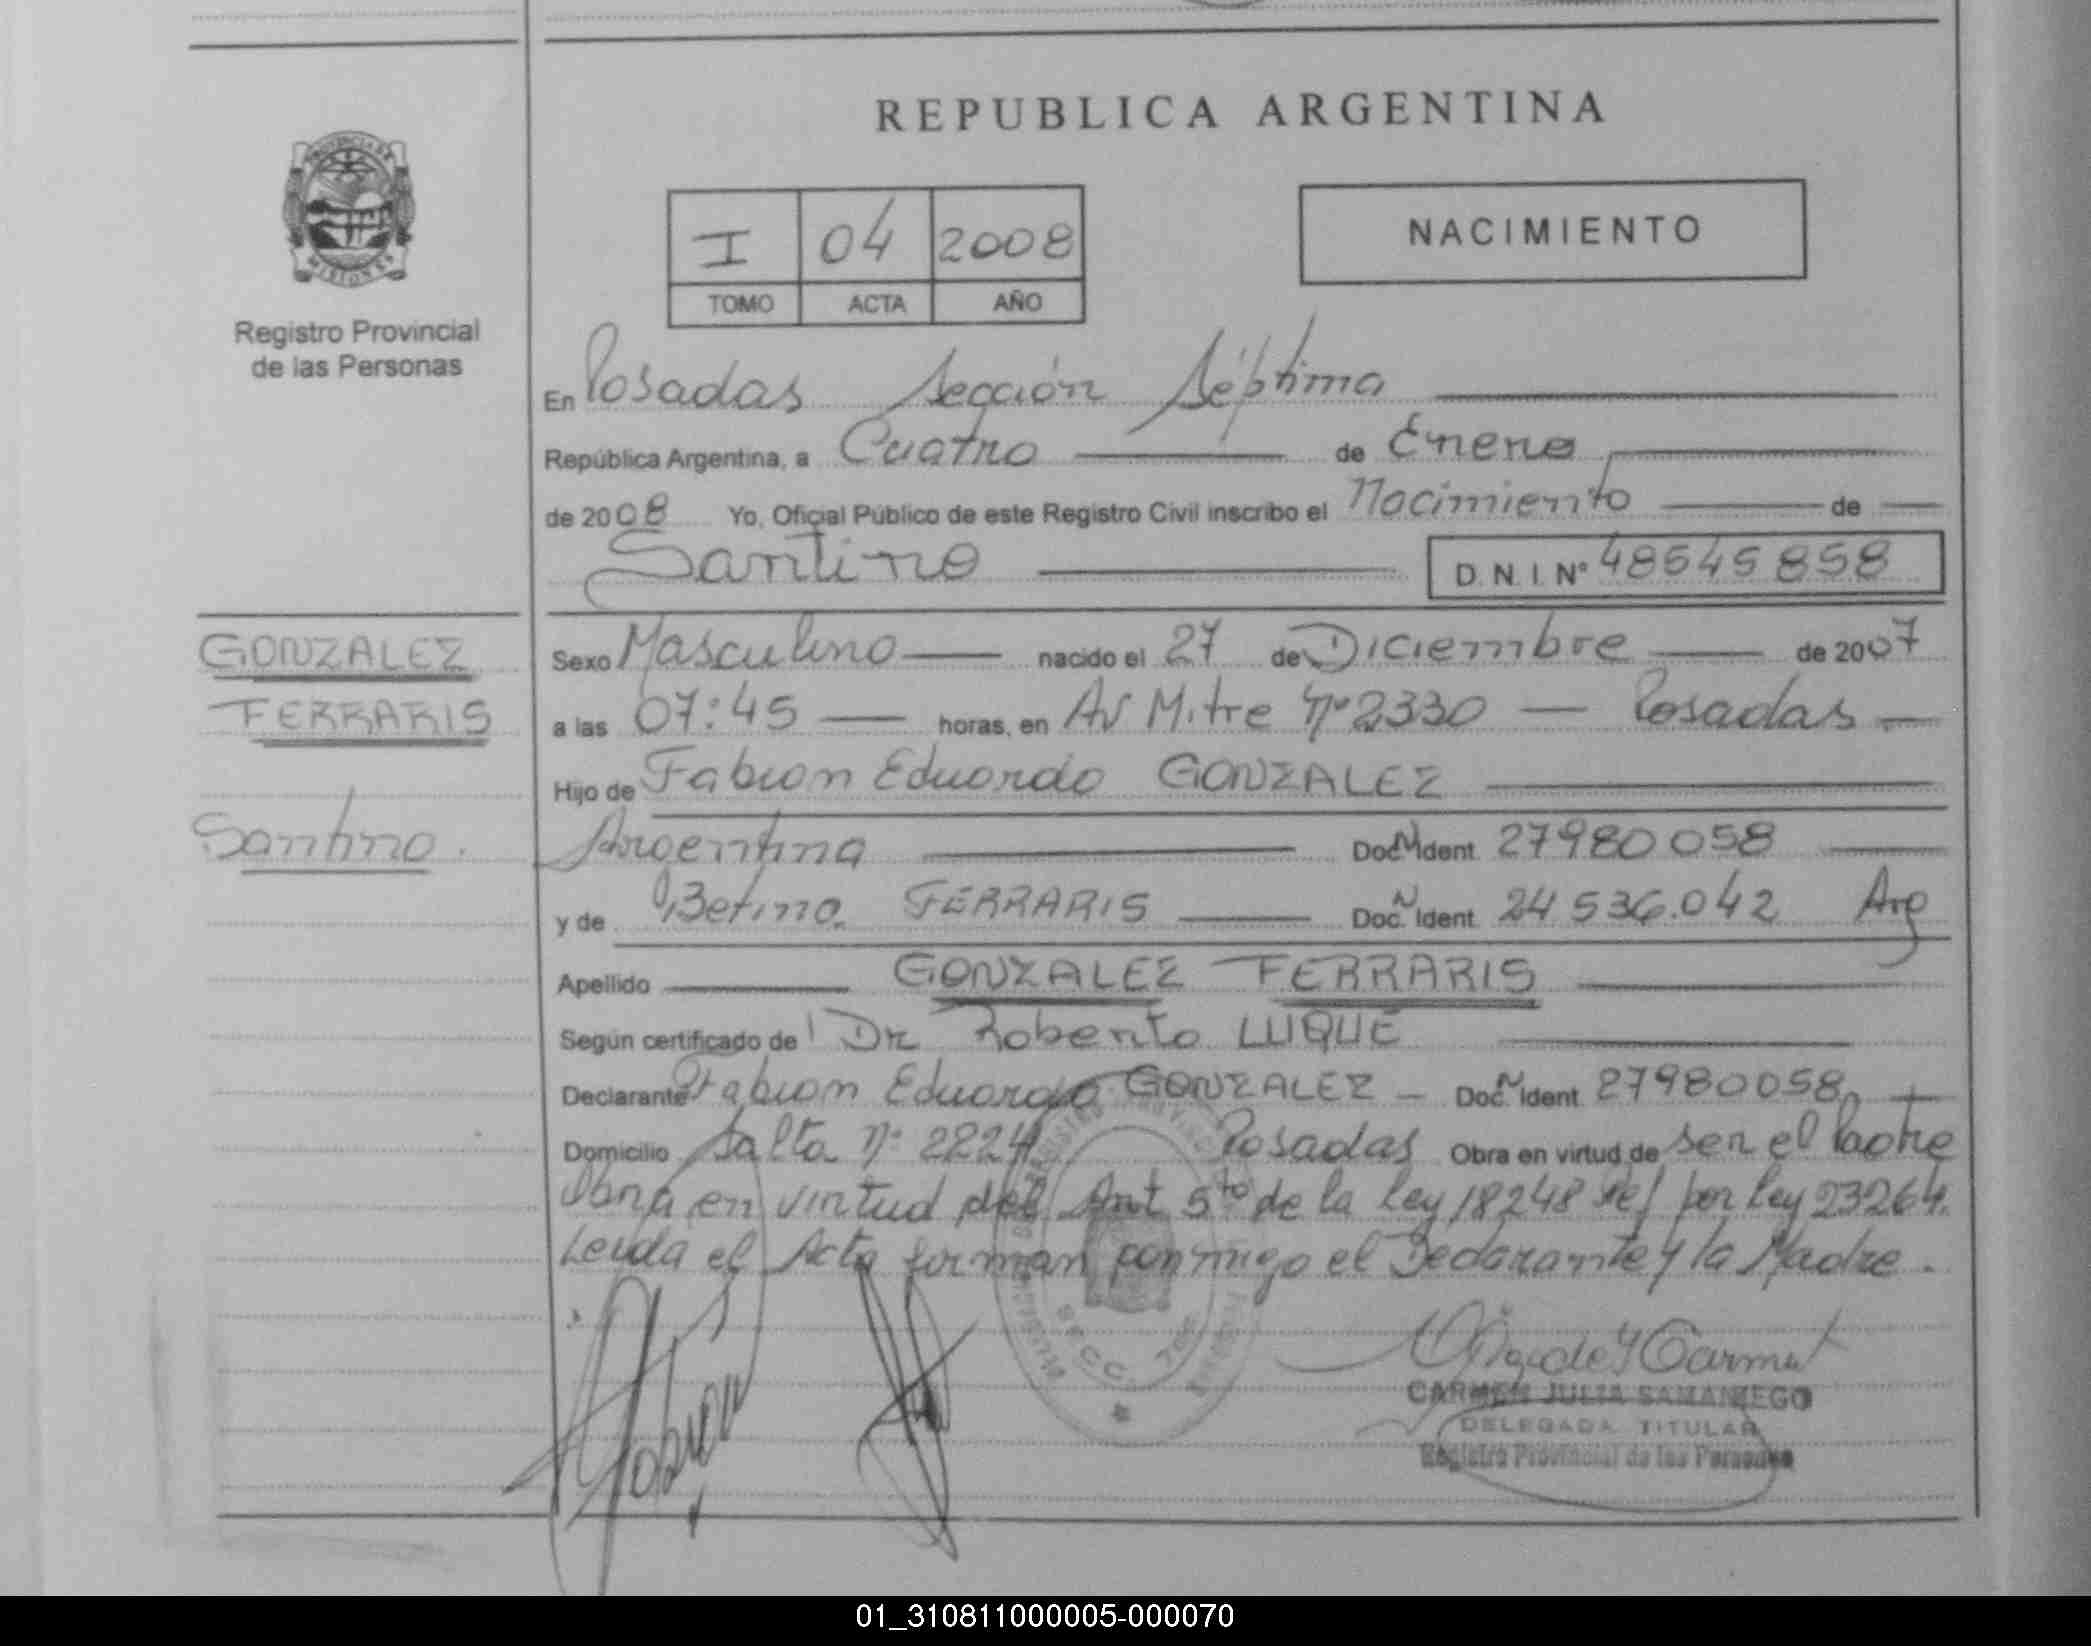 REPUBLICA ARGENTINA
PROVINCIA DE
MISIONES
Registro Provincial
de las Personas
I 04 2008
TOMO ACTA AÑO
NACIMIENTO
En Posadas Sección Séptima
República Argentina, a Cuatro de Enero
de 2008 Yo, Oficial Público de este Registro Civil inscribo el Nacimiento de
Santino D.N.I. Nº 48545858
GONZALEZ
FERRARIS
Santino.
Sexo Masculino nacido el 27 de Diciembre de 2007
a las 07:45 horas, en Av Mitre Nº 2330 — Posadas
Hijo de Fabian Eduardo GONZALEZ
Argentina Doc. N Ident. 27980058
y de Betina FERRARIS Doc. N Ident. 24.536.042 Arg
Apellido GONZALEZ FERRARIS
Según certificado de Dr Roberto LUQUE
Declarante Fabian Eduardo GONZALEZ — Doc. N Ident. 27980058
Domicilio Salta Nº 2224 Posadas Obra en virtud de ser el Padre
Obra en virtud del Art 5to de la Ley 18248 ref por Ley 23264.
Leida el Acta firman conmigo el Declarante y la Madre.
Fabian
SECC. 7
CARMEN JULIA SAMANIEGO
DELEGADA TITULAR
Registro Provincial de las Personas
01_310811000005-000070